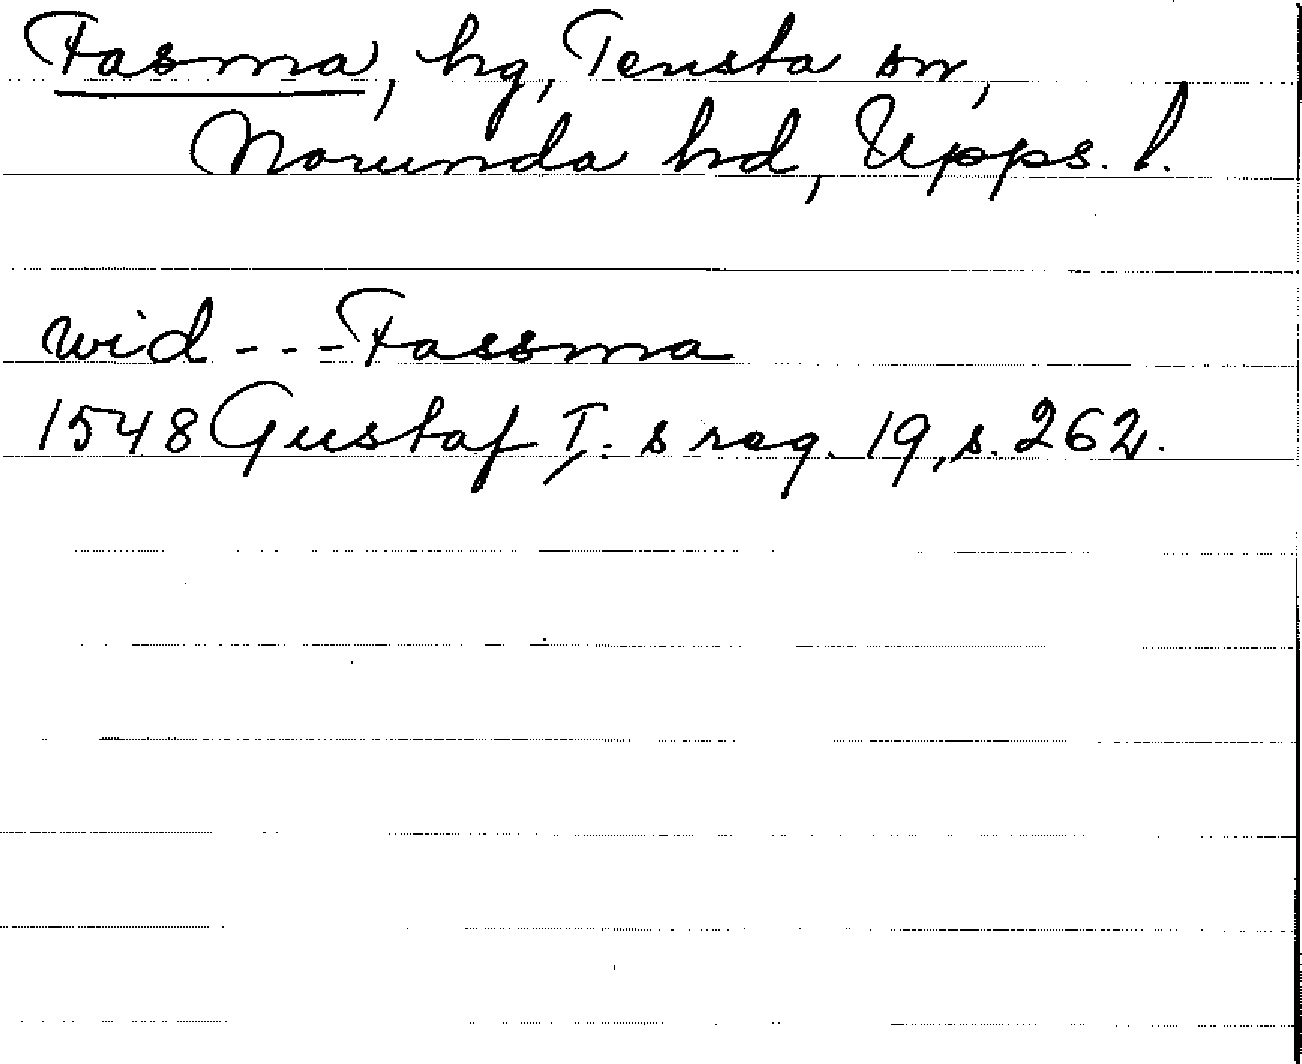 Fasma, hg, Tensta sn,
Norunda hd, Upps. l.
wid - - - Fassma
1548 Gustaf I:s reg. 19, s. 262.